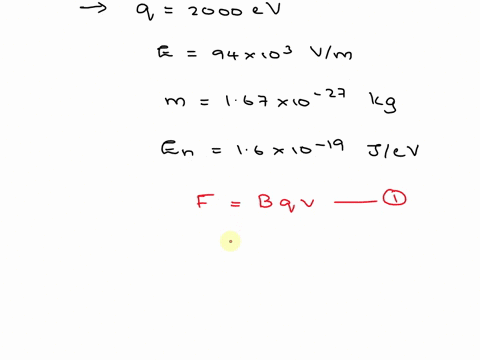 → q = 2000 eV
E = 94×10³ V/m
m = 1.67×10⁻²⁷ kg
En = 1.6×10⁻¹⁹ J/eV
F = Bqv —— ①